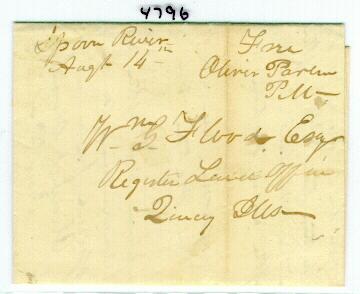 4796
Spoon River
Augt 14th
Free
Oliver
PM
Wm G Flood Esq
Register Land Office
Quincy Ills